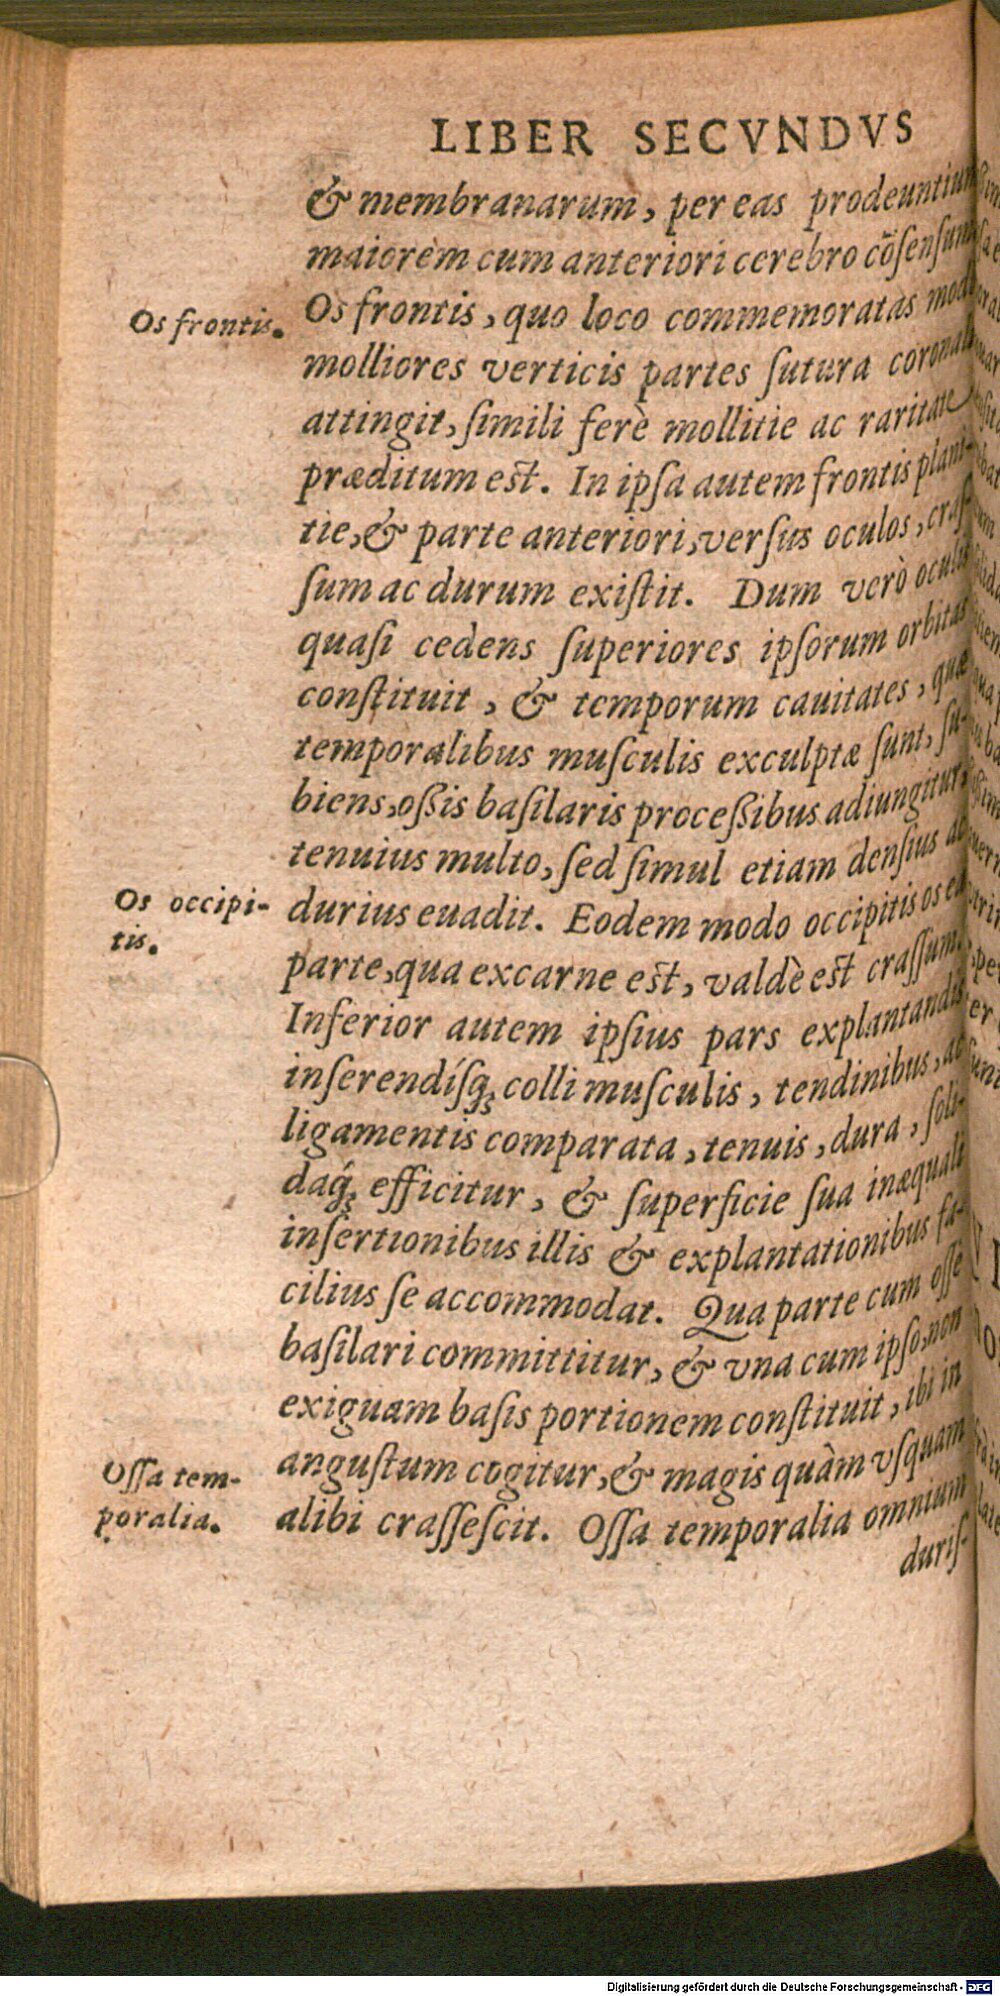 LIBER SECVNDVS
& membranarum, per eas prodeuntium
maiorem cum anteriori cerebro cõsensum
Os frontis.
Os frontis, quo loco commemoratas modò
molliores verticis partes sutura coronali
attingit, simili ferè mollitie ac raritate
præditum est. In ipsa autem frontis plani-
tie, & parte anteriori, versus oculos, cras-
sum ac durum existit. Dum verò oculis
quasi cedens superiores ipsorum orbitas
constituit, & temporum cauitates, quæ
temporalibus musculis exculptæ sunt, su-
biens, ossis basilaris processibus adiungitur,
tenuius multo, sed simul etiam densius ac
Os occipi-
tis.
durius euadit. Eodem modo occipitis os ea
parte, qua excarne est, valdè est crassum.
Inferior autem ipsius pars explantandis
inserendísq; colli musculis, tendinibus, ac
ligamentis comparata, tenuis, dura, soli-
daq́; efficitur, & superficie sua inæquali
insertionibus illis & explantationibus fa-
cilius se accommodat. Qua parte cum osse
basilari committitur, & vna cum ipso, non
exiguam basis portionem constituit, ibi in
angustum cogitur, & magis quàm vsquam
Ossa tem-
poralia.
alibi crassescit. Ossa temporalia omnium
duris-
Digitalisierung gefördert durch die Deutsche Forschungsgemeinschaft - DFG